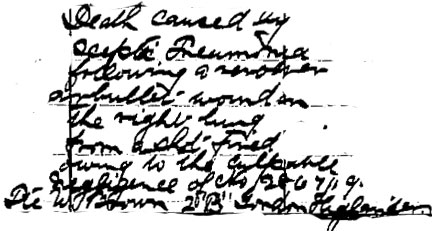 Death caused by
Sceptic Pneumonia
following a revolver
bullet wound in
the right lung
from a shot fired
owing to the culpable
negligence of No
Pte W Brown 2 "B" Gordon Highlanders